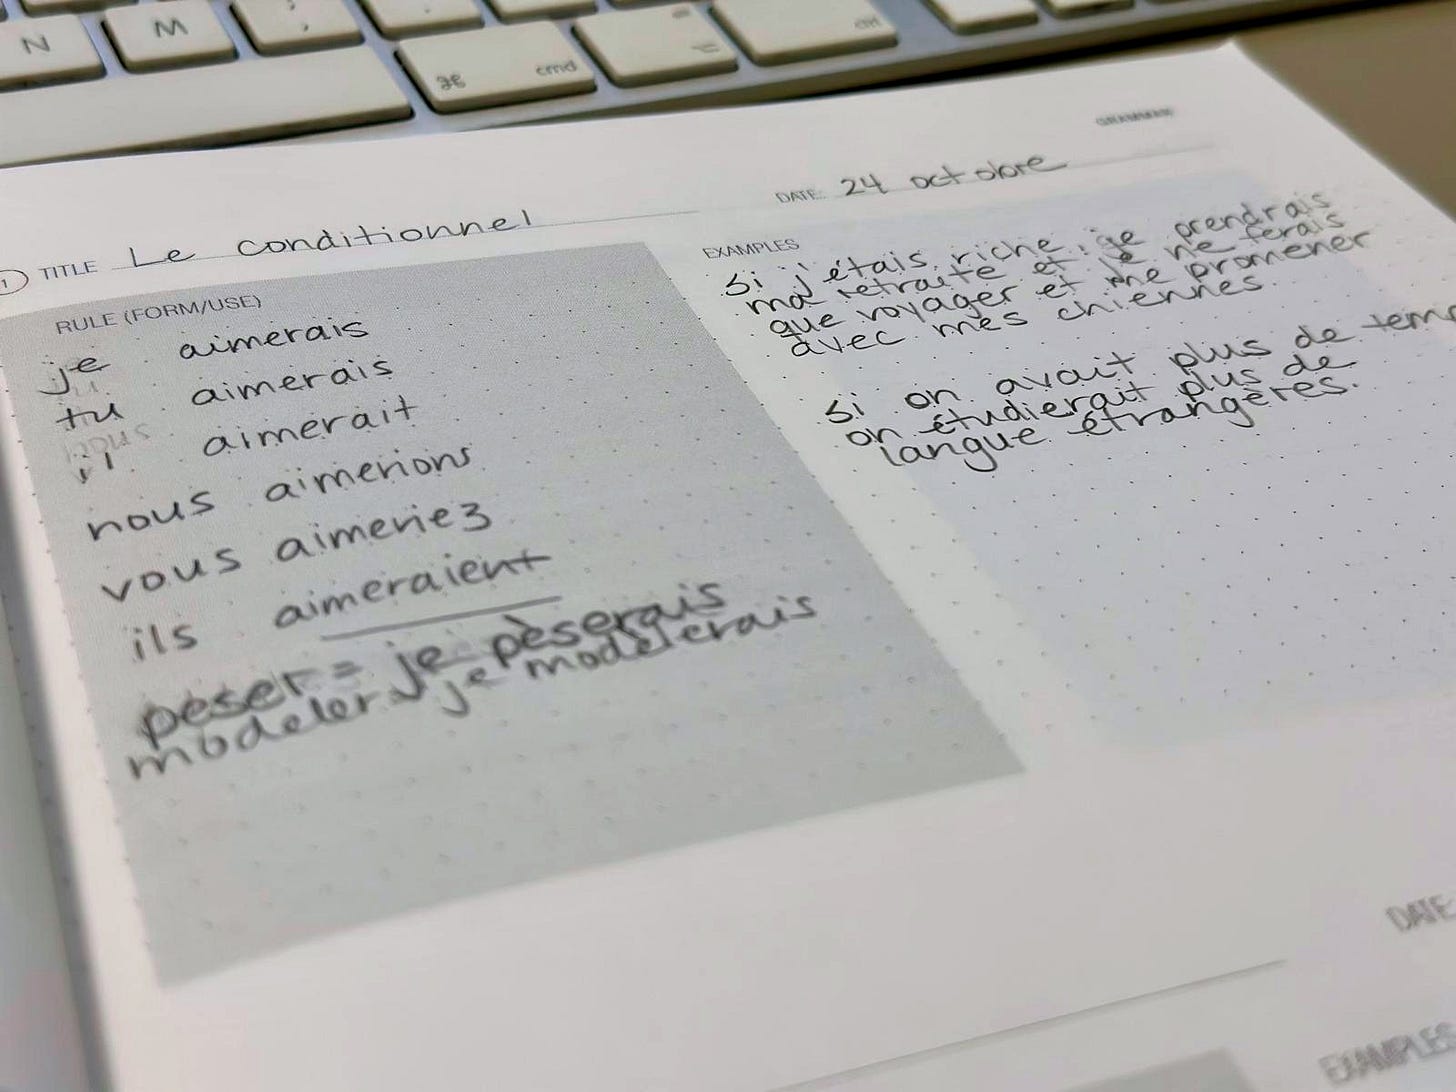 N
M
;
⌘ cmd
⌥
ctrl
GRAMMAR
1 TITLE Le conditionnel
DATE: 24 octobre
RULE (FORM/USE)
je aimerais
tu aimerais
il aimerait
nous aimerions
vous aimeriez
ils aimeraient
peser = je pèserais
modeler je modèlerais
EXAMPLES
Si j'étais riche, je prendrais
ma retraite et je ne ferais
que voyager et me promener
avec mes chiennes.
Si on avait plus de temp
on étudierait plus de
langue étrangères.
DATE:
EXAMPLES